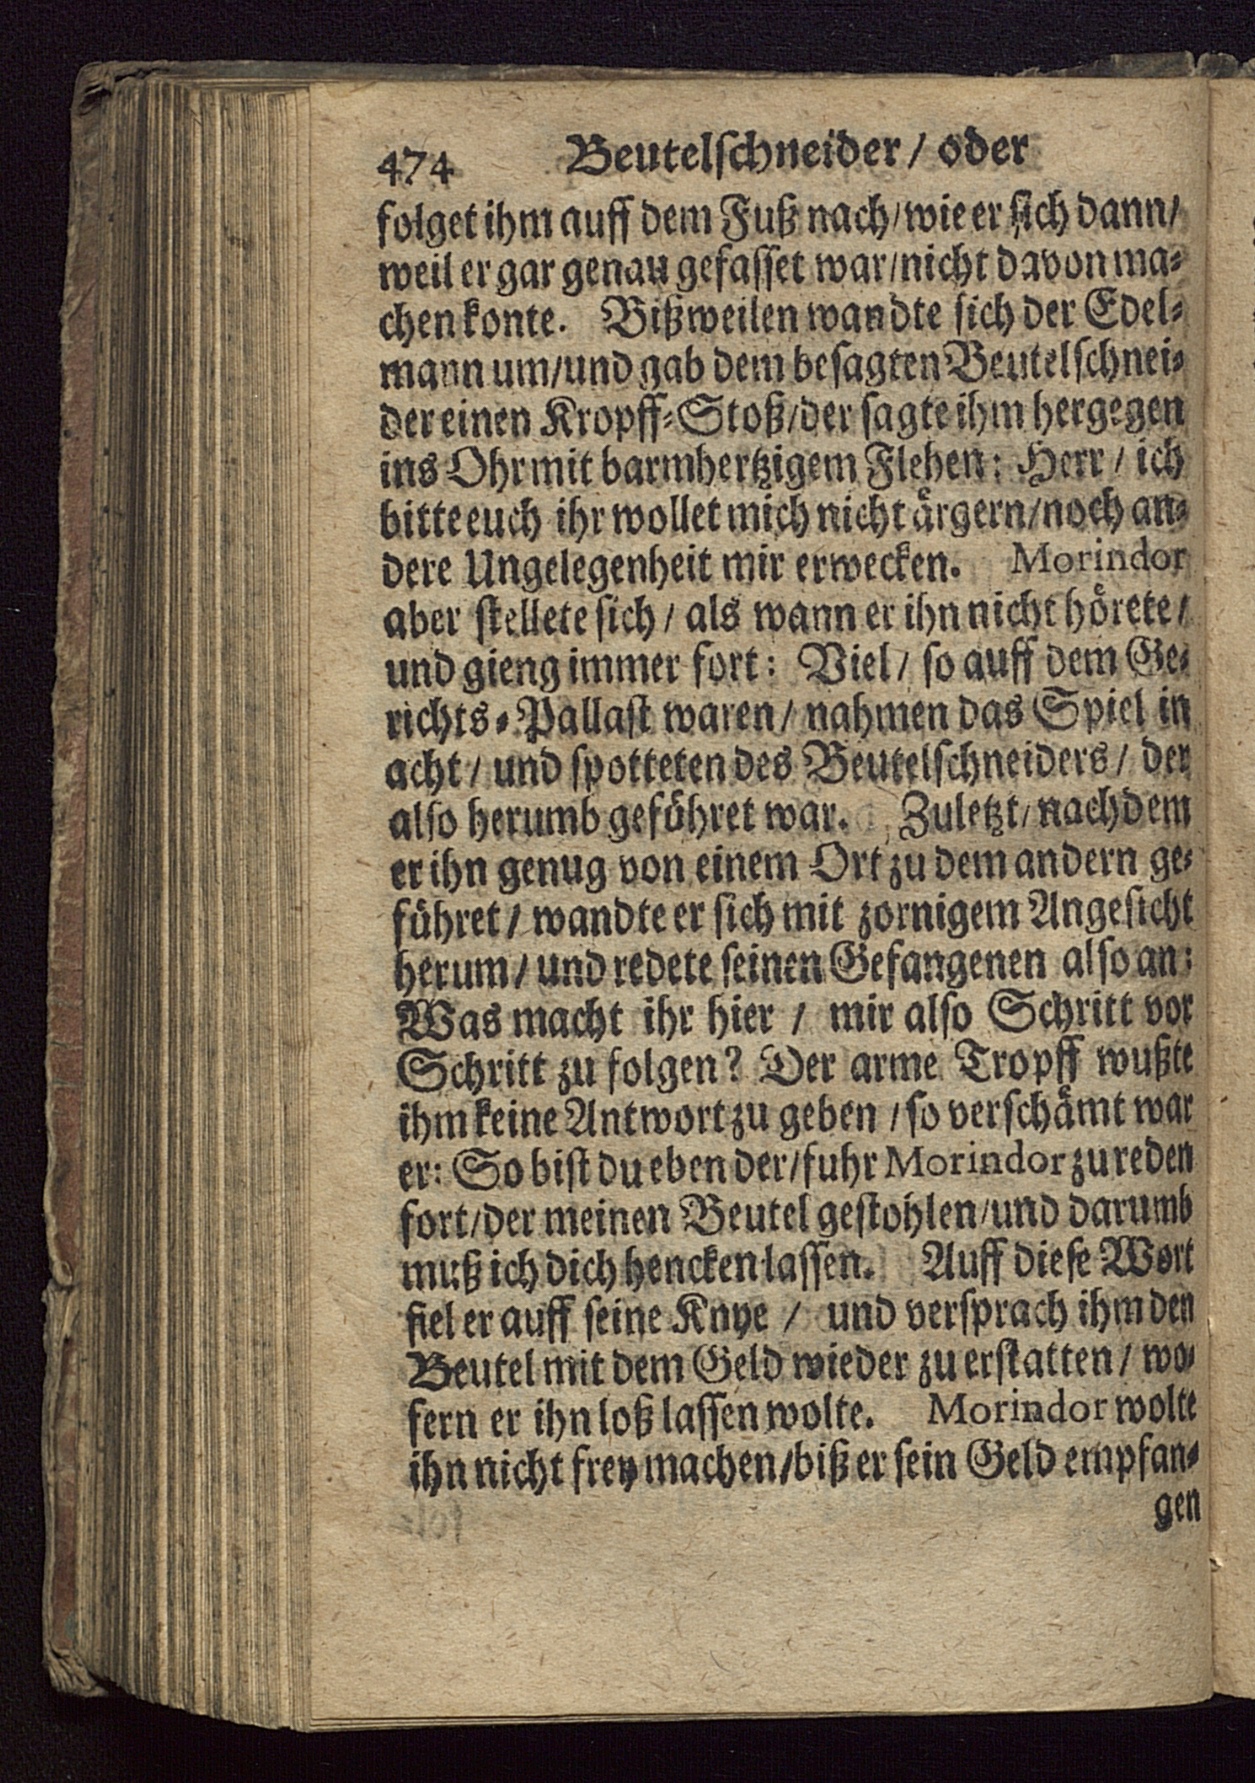 474 Beutelſchneider / oder
folget ihm auff dem Fuß nach / wie er ſich dann /
weil er gar genau gefaſſet war / nicht davon ma⸗
chen konte. Bißweilen wandte ſich der Edel⸗
mann um / und gab dem beſagten Beutelſchnei⸗
der einen Kropff⸗Stoß / der ſagte ihm hergegen
ins Ohr mit barmhertzigem Flehen: Herr / ich
bitte euch ihr wollet mich nicht aͤrgern / noch an⸗
dere Ungelegenheit mir erwecken. Morindor
aber ſtellete ſich / als wann er ihn nicht hoͤrete /
und gieng immer fort: Viel / ſo auff dem Ge⸗
richts⸗Pallaſt waren / nahmen das Spiel in
acht / und ſpotteten des Beutelſchneiders / der
alſo herumb gefuͤhret war. Zuletzt / nachdem
er ihn genug von einem Ort zu dem andern ge⸗
fuͤhret / wandte er ſich mit zornigem Angeſicht
herum / und redete ſeinen Gefangenen alſo an:
Was macht ihr hier / mir alſo Schritt vor
Schritt zu folgen? Der arme Tropff wußte
ihm keine Antwort zu geben / ſo verſchaͤmt war
er: So biſt du eben der / fuhr Morindor zu reden
fort / der meinen Beutel geſtohlen / und darumb
muß ich dich hencken laſſen. Auff dieſe Wort
fiel er auff ſeine Knye / und verſprach ihm den
Beutel mit dem Geld wieder zu erſtatten / wo⸗
fern er ihn loß laſſen wolte. Morindor wolte
ihn nicht frey machen / biß er ſein Geld empfan⸗
gen